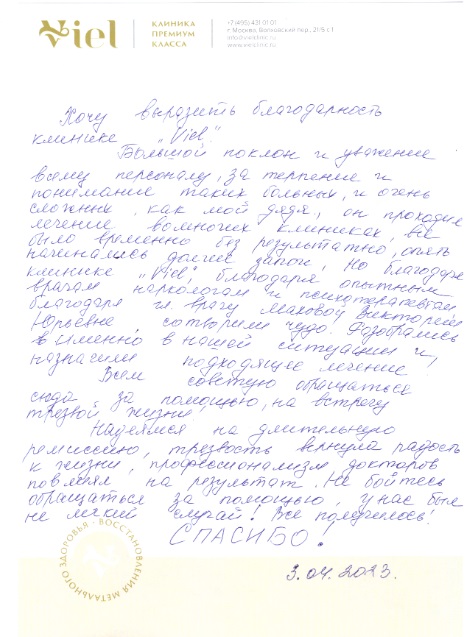 Viel
КЛИНИКА
ПРЕМИУМ
КЛАССА
+7(495) 431 01 01
г. Москва, Волховский пер., 21/5 с.1
info@vielclinic.ru
www.vielclinic.ru
Хочу выразить благодарность
клинике „Viel".
Большой поклон и уважение
всему персоналу, за терпение и
понимание таких больных, и очень
сложных, как мой дядя, он проходил
лечение во многих клиниках, всё
было временно без результатно, опять
начинались долгие запои, Но благодаря
клинике „Viel", благодаря опытным
врачам наркологам и психотерапевтам
благодаря гл. врачу Маховой Виктории
Юрьевне, сотворили чудо. Разобрались
в именно в нашей ситуации и,
назначили подходящее лечение.
Всем советую обращаться
сюда за помощью, на встречу
трезвой жизни,
Надеемся на длительную
ремиссию, трезвость вернула радость
к жизни, профессионализм докторов
повлиял на результат. Не бойтесь
обращаться за помощью, у нас был
не легкий случай! Всё получилось!
СПАСИБО!
3.04.2023.
ВОССТАНОВЛЕНИЯ МЕТАЛЬНОГО ЗДОРОВЬЯ